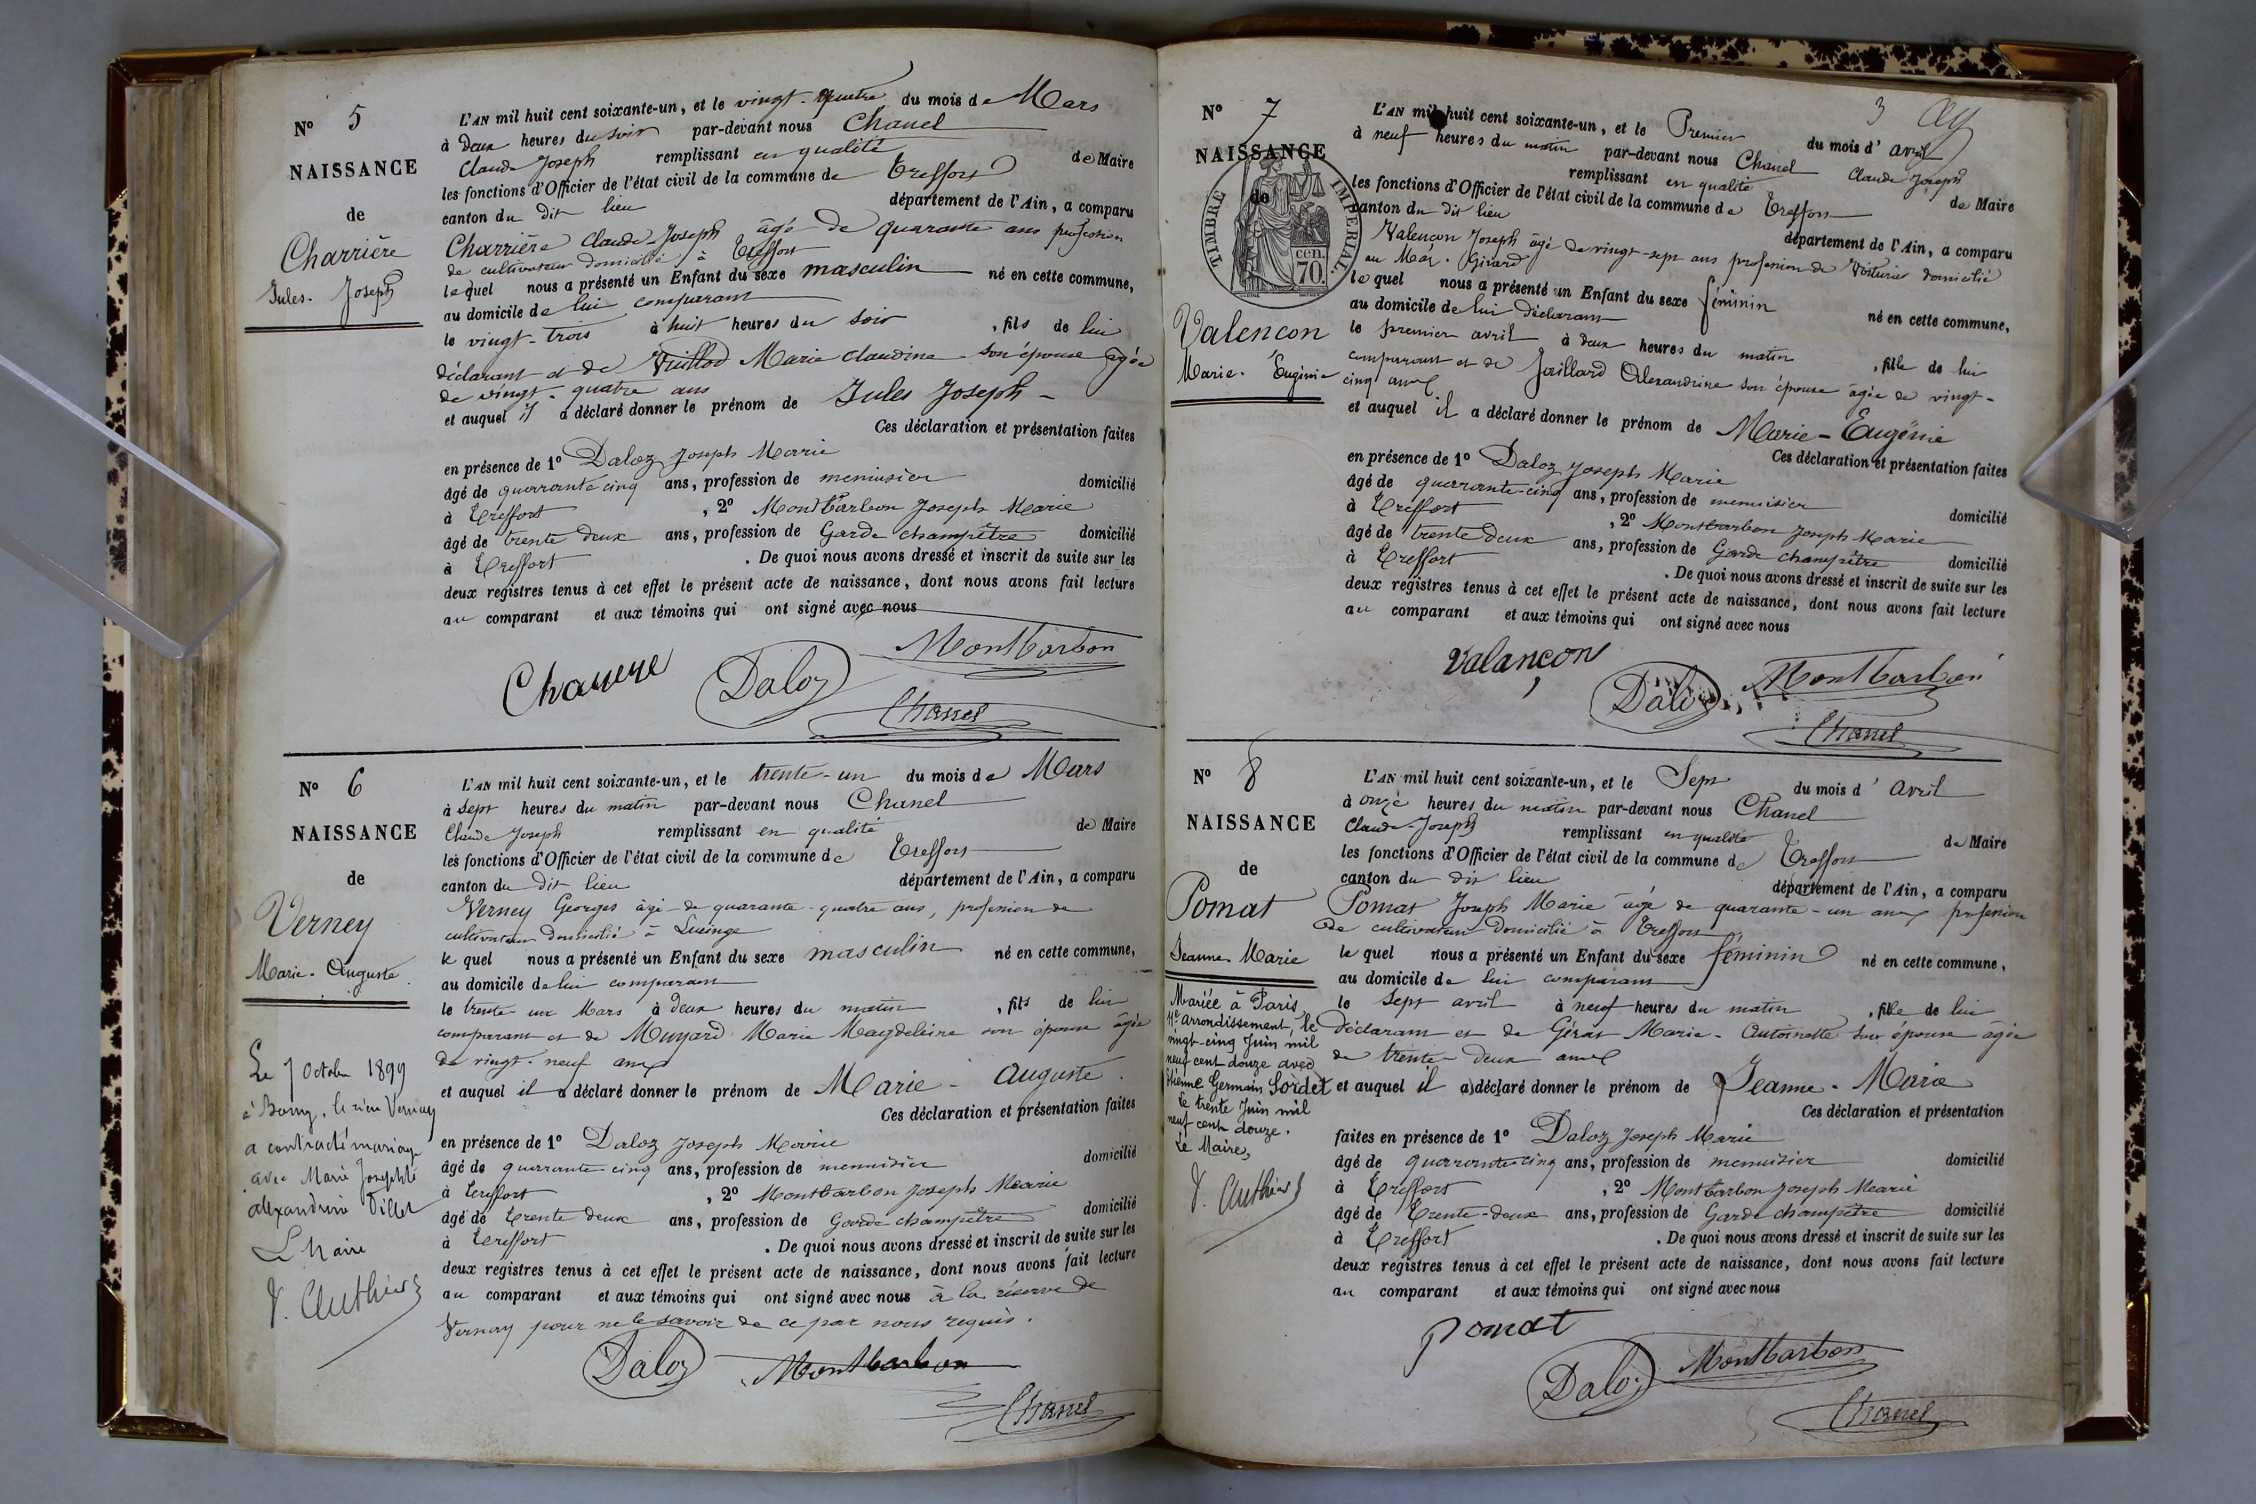 N° 5
NAISSANCE
de
Charrière
Jules. Joseph
L'AN mil huit cent soixante-un, et le vingt-quatre du mois de Mars
à deux heures du soir par-devant nous Chanel
Claude Joseph remplissant en qualité de Maire
les fonctions d'Officier de l'état civil de la commune de Treffort
canton du dit lieu département de l'Ain, a comparu
Charrière Claude-Joseph âgé de quarante ans profession
de cultivateur domicilié à Treffort
lequel nous a présenté un Enfant du sexe masculin né en cette commune,
au domicile de lui comparant
le vingt-trois à huit heures du soir , fils de lui
déclarant et de Vuillod Marie Claudine son épouse agée
de vingt-quatre ans
et auquel il a déclaré donner le prénom de Jules Joseph -
Ces déclaration et présentation faites
en présence de 1° Daloz Joseph Marie
âgé de quarante cinq ans, profession de menuisier domicilié
à Treffort , 2° Montbarbon Joseph Marie
âgé de trente deux ans, profession de Garde champêtre domicilié
à Treffort . De quoi nous avons dressé et inscrit de suite sur les
deux registres tenus à cet effet le présent acte de naissance, dont nous avons fait lecture
au comparant et aux témoins qui ont signé avec nous
Montbarbon
Daloz
Chanel
N° 6
NAISSANCE
de
Verney
Marie-Auguste
Le 7 Octobre 1899
à Bourg, le sieur Vernay
a contracté mariage
avec Marie Josephte
alexandrine Villet
L Maire
V. Authier
L'AN mil huit cent soixante-un, et le trente-un du mois de Mars
à sept heures du matin par-devant nous Chanel
Claude Joseph remplissant en qualité de Maire
les fonctions d'Officier de l'état civil de la commune de Treffort
canton du dit lieu département de l'Ain, a comparu
Verney Georges âgé de quarante-quatre ans, profession de
cultivateur domicilié à Lucinge
le quel nous a présenté un Enfant du sexe masculin né en cette commune,
au domicile de lui comparant
le trente un Mars à deux heures du matin , fils de lui
comparant et de Marie Magdeleine son épouse âgée
de vingt-neuf ans
et auquel il a déclaré donner le prénom de Marie-Auguste.
Ces déclaration et présentation faites
en présence de 1° Daloz Joseph Marie
âgé de quarante-cinq ans, profession de menuisier domicilié
à Treffort , 2° Montbarbon Joseph Marie
âgé de trente deux ans, profession de Garde champêtre domicilié
à Treffort . De quoi nous avons dressé et inscrit de suite sur les
deux registres tenus à cet effet le présent acte de naissance, dont nous avons fait lecture
au comparant et aux témoins qui ont signé avec nous à la réserve de
Vernay pour ne le savoir de ce par nous requis.
Daloz Montbarbon
Chanel
3
N° 7
NAISSANCE
de
TIMBRE IMPÉRIAL
70 cen.
Valencon
Marie-Eugénie
L'AN mil huit cent soixante-un, et le Premier du mois d' avril
à neuf heures du matin par-devant nous Chanel Claude Joseph
remplissant en qualité de Maire
les fonctions d'Officier de l'état civil de la commune de Treffort
canton du dit lieu département de l'Ain, a comparu
Valencon Joseph âgé de vingt-sept ans profession de Voiturier domicilié
au Girard
le quel nous a présenté un Enfant du sexe féminin né en cette commune,
au domicile de lui déclarant
le premier avril à deux heures du matin , fille de lui
comparant et de Jaillard Alexandrine son épouse âgée de vingt-
cinq ans
et auquel il a déclaré donner le prénom de Marie-Eugénie
Ces déclaration et présentation faites
en présence de 1° Daloz Joseph Marie
âgé de quarante-cinq ans, profession de menuisier domicilié
à Treffort , 2° Montbarbon Joseph Marie
âgé de trente deux ans, profession de Garde champêtre domicilié
à Treffort . De quoi nous avons dressé et inscrit de suite sur les
deux registres tenus à cet effet le présent acte de naissance, dont nous avons fait lecture
au comparant et aux témoins qui ont signé avec nous
Valançon
Daloz Montbarbon
Chanel
N° 8
NAISSANCE
de
Pomat
Jeanne Marie
Mariée à Paris
arrondissement, le
vingt-cinq Juin mil
neuf cent douze avec
Etienne Germain Sordet
Le trente Juin mil
neuf cent douze.
Le Maire,
V. Authier
L'AN mil huit cent soixante-un, et le Sept du mois d' avril
à onze heures du matin par-devant nous Chanel
Claude-Joseph remplissant en qualité de Maire
les fonctions d'Officier de l'état civil de la commune de Treffort
canton du dit lieu département de l'Ain, a comparu
Pomat Joseph Marie âgé de quarante-un ans profession
de cultivateur domicilié à Treffort
le quel nous a présenté un Enfant du sexe féminin né en cette commune,
au domicile de lui comparant
le sept avril à neuf heures du matin , fille de lui
déclarant et de Marie-Antoinette son épouse agée
de trente-deux ans
et auquel il a déclaré donner le prénom de Jeanne-Marie
Ces déclaration et présentation
faites en présence de 1° Daloz Joseph Marie
âgé de quarante cinq ans, profession de menuisier domicilié
à Treffort , 2° Montbarbon Joseph Marie
âgé de trente-deux ans, profession de Garde champêtre domicilié
à Treffort . De quoi nous avons dressé et inscrit de suite sur les
deux registres tenus à cet effet le présent acte de naissance, dont nous avons fait lecture
au comparant et aux témoins qui ont signé avec nous
Pomat
Daloz Montbarbon
Chanel